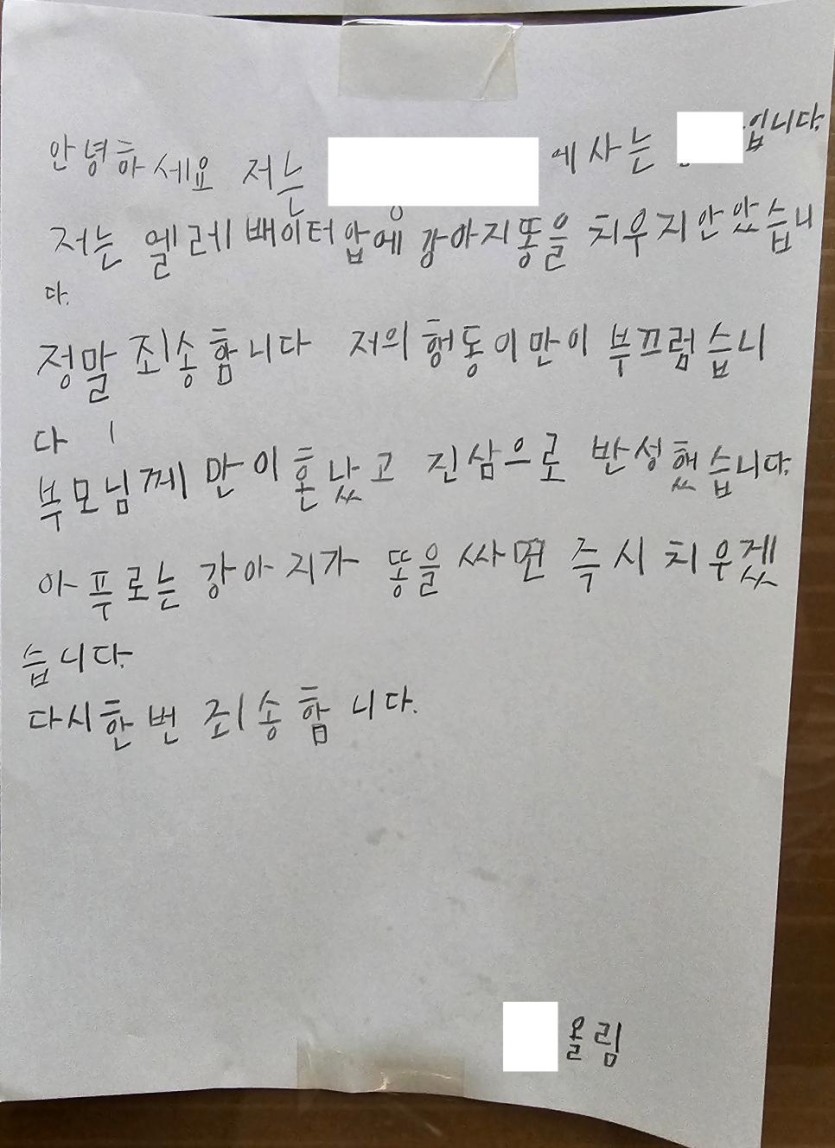 안녕하세요 저는 에사는 입니다.
저는 엘레배이터압에 강아지똥을 치우지안았습니
다.
정말 죄송합니다 저의 헹동이만이 부끄럼습니
다
부모님께 만이혼났고 진삼으로 반성했습니다.
아푸로는 강아지가 똥을 싸면 즉시 치우겠
습니다.
다시한번 죄송합니다.
올림